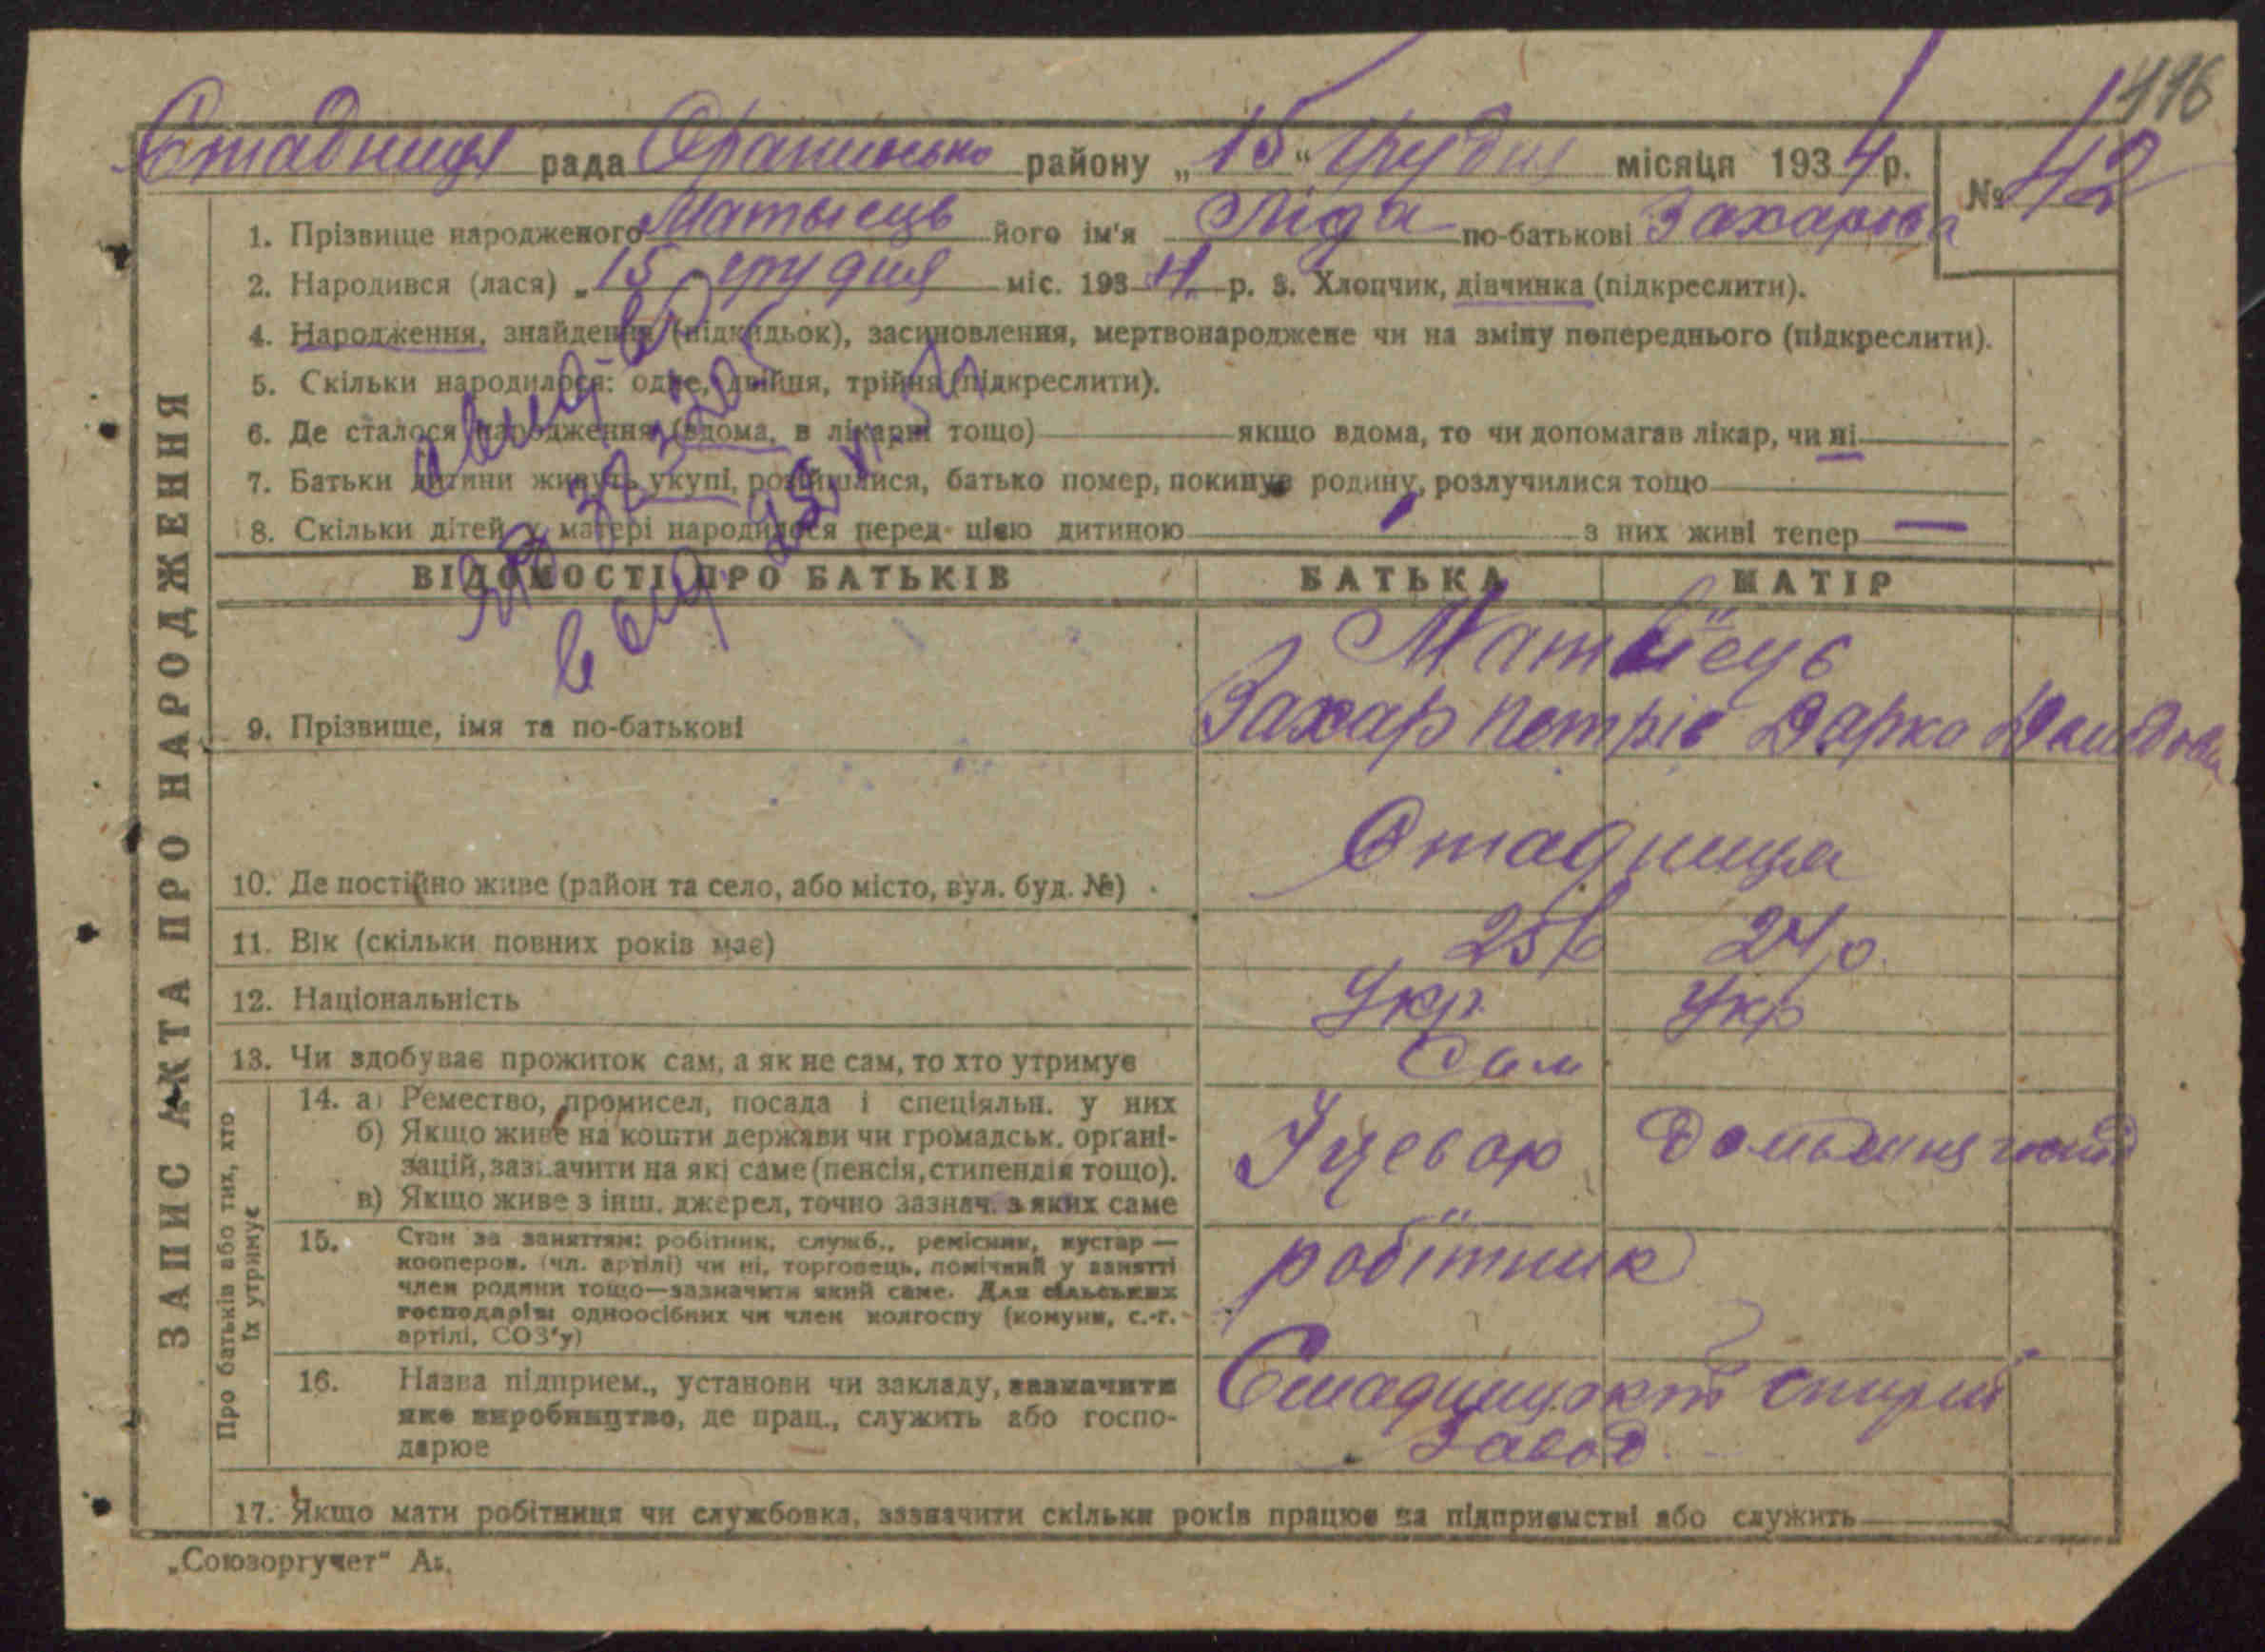 116
Стадниця рада Оратисько району „15“ грудня місяця 1934 р. № 42
1. Прізвище народженого Матыець його ім'я Ліда по-батькові Захарова
2. Народився (лася) „15 грудня міс. 1934. р. 3. Хлопчик, дівчинка (підкреслити).
4. Народження, знайдення (підкидьок), засиновлення, мертвонароджене чи на зміну попереднього (підкреслити).
5. Скільки народилося: одне, двійня, трійня (підкреслити).
6. Де сталося народження, (вдома, в лікарні тощо) якщо вдома, то чи допомагав лікар, чи ні
7. Батьки дитини живуть укупі, розійшлися, батько помер, покинув родину, розлучилися тощо
8. Скільки дітей у матері народилося перед цією дитиною з них живі тепер —
ЗАПИС АКТА ПРО НАРОДЖЕННЯ
ВІДОМОСТІ ПРО БАТЬКІВ БАТЬКА МАТІР
Матвієць
9. Прізвище, імя та по-батькові Захар Петрів Дарка
10. Де постійно живе (район та село, або місто, вул. буд. №) Стадниця
11. Вік (скільки повних років має) 25 24 р.
12. Національність Укр. Укр
13. Чи здобуває прожиток сам, а як не сам, то хто утримує Сам
Про батьків або тих, хто їх утримує
14. а) Ремество, промисел, посада і спеціяльн. у них
б) Якщо живе на кошти держави чи громадськ. органі-
зацій, зазначити на які саме (пенсія, стипендія тощо).
в) Якщо живе з інш. джерел, точно зазнач. з яких саме
15. Стан за заняттям: робітник, служб., ремісник, кустар —
кооперов. (чл. артілі) чи ні, торговець, помічний у занятті
член родини тощо—зазначити який саме. Для сільських
господарів: одноосібних чи член колгоспу (комуни, с.-г.
артілі, СОЗ'у)
робітник
16. Назва підприєм., установи чи закладу, зазначити
яке виробництво, де прац., служить або госпо-
дарює
завод
17. Якщо мати робітниця чи службовка, зазначити скільки років працює на підприємстві або служить
„Союзоргучет“